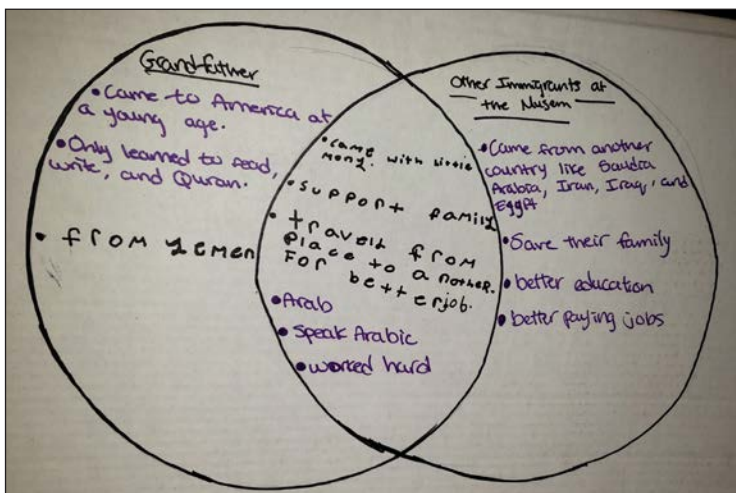 Grandfather
• Came to America at
a young age.
• Only learned to read,
write, and Quran.
• from Yemen
• came with little
mony.
• support family
• travelt from
place to a nother.
For better job.
• Arab
• Speak Arabic
• worked hard
Other Immigrants at
the Musem
• Came from another
country like Saudia
Arabia, Iran, Iraq, and
Egypt
• Save their family
• better education
• better paying jobs